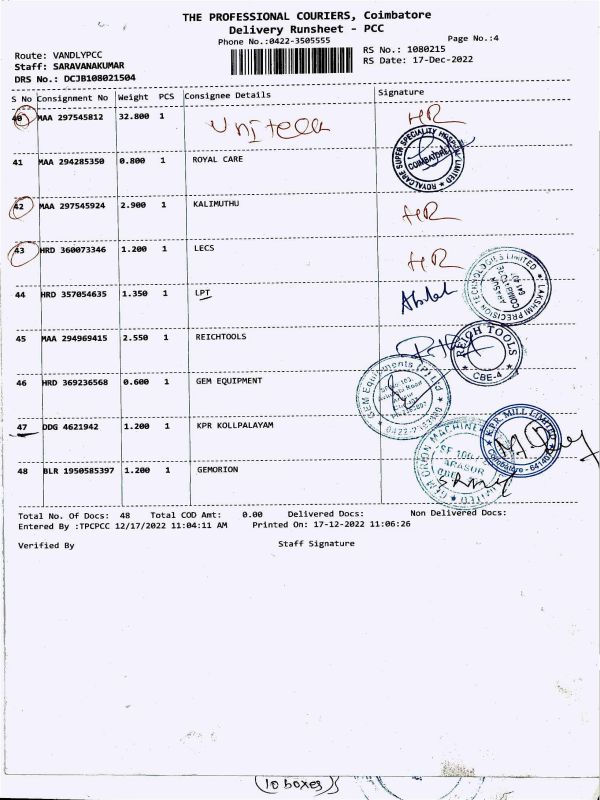 THE PROFESSIONAL COURIERS, Coimbatore
Delivery Runsheet - PCC
Phone No.:0422-3505555
Page No.:4
Route: VANDLYPCC
RS No.: 1080215
Staff: SARAVANAKUMAR
RS Date: 17-Dec-2022
DRS No.: DCJB108021504
S No Consignment No Weight PCS Consignee Details Signature
40 MAA 297545812 32.800 1 Unitech HR
41 MAA 294285350 0.800 1 ROYAL CARE
ROYALCARE SUPER SPECIALITY HOSPITAL LIMITED COIMBATORE
42 MAA 297545924 2.900 1 KALIMUTHU HR
43 HRD 360073346 1.200 1 LECS HR
44 HRD 357054635 1.350 1 LPT
LAKSHMI PRECISION TECHNOLOGIES LIMITED ARASUR COIMBATORE 641 407
45 MAA 294969415 2.550 1 REICHTOOLS
REICH TOOLS CBE-4
46 HRD 369236568 0.600 1 GEM EQUIPMENT
GEM Equipments (P) Ltd
47 DDG 4621942 1.200 1 KPR KOLLPALAYAM
KPR MILL LIMITED Coimbatore - 641407
48 BLR 1950585397 1.200 1 GEMORION
GEM ORION MACHINERY LIMITED ARASUR
Total No. Of Docs: 48 Total COD Amt: 0.00 Delivered Docs: Non Delivered Docs:
Entered By :TPCPCC 12/17/2022 11:04:11 AM Printed On: 17-12-2022 11:06:26
Verified By Staff Signature
(10 boxes)